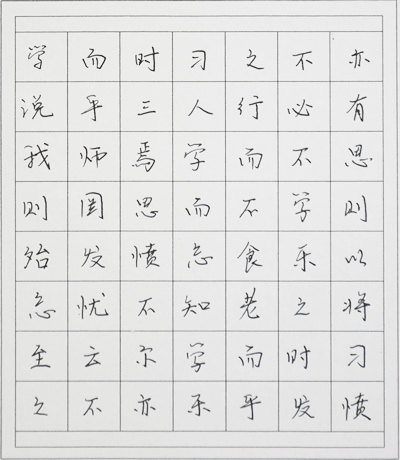 学而时习之不亦
说乎三人行必有
我师焉学而不思
则罔思而不学则
殆发愤忘食乐以
忘忧不知老之将
至云尔学而时习
之不亦乐乎发愤